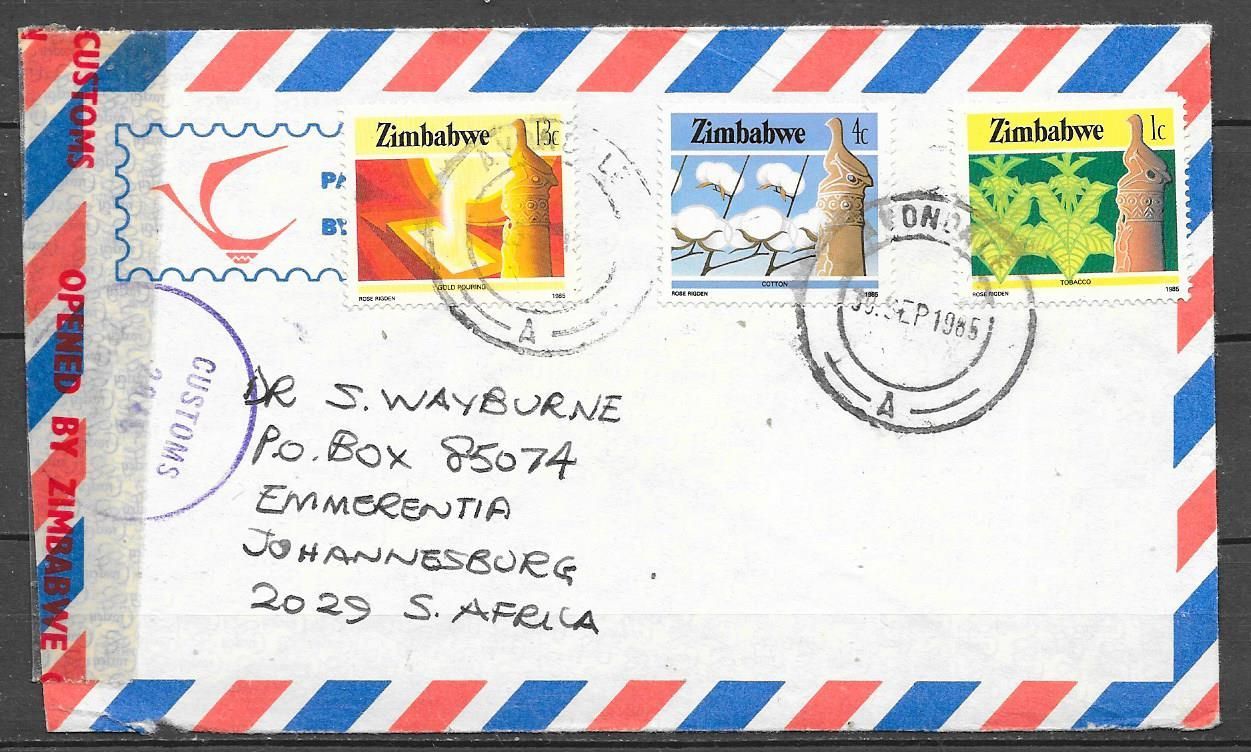 CUSTOMS OPENED BY ZIMBABWE
PA
BY
Zimbabwe 13c
GOLD POURING
ROSE RIGDEN 1985
Zimbabwe 4c
COTTON
ROSE RIGDEN 1985
Zimbabwe 1c
TOBACCO
ROSE RIGDEN 1985
A
SEP 1985
A
CUSTOMS
CUSTOMS
DR S. WAYBURNE
P.O. BOX 85074
EMMERENTIA
JOHANNESBURG
2029 S. AFRICA